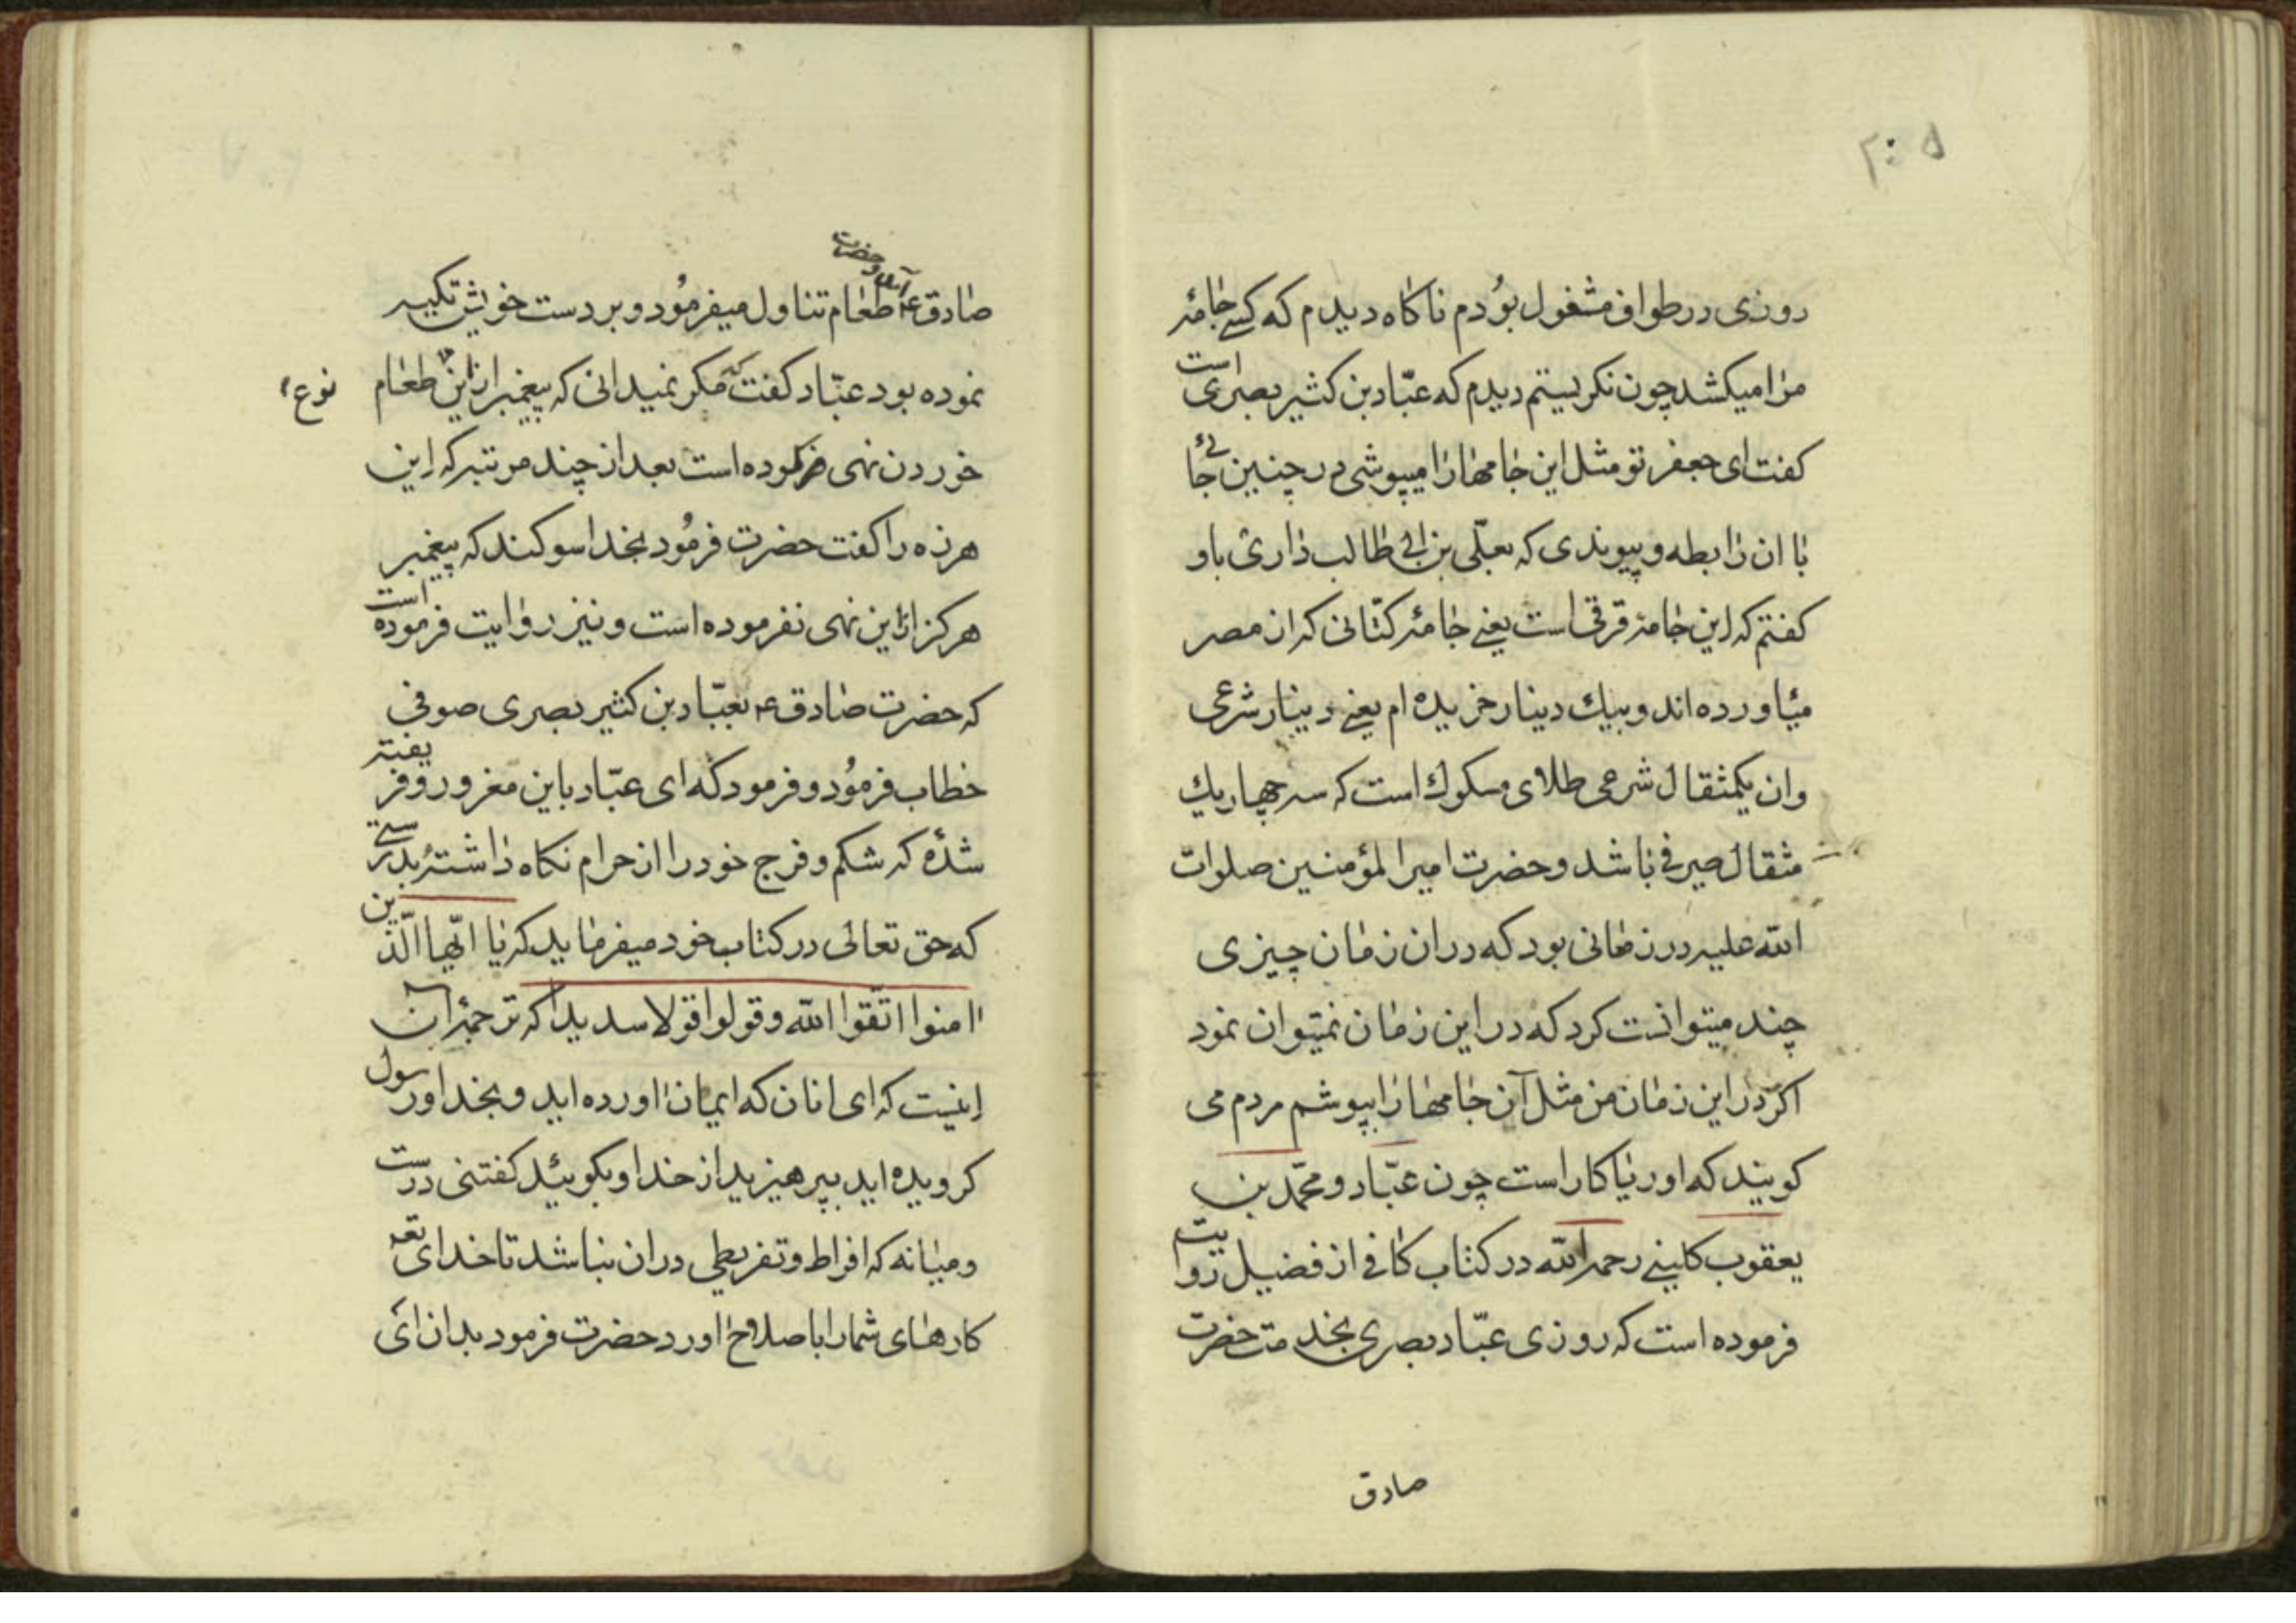 ۲۰۵
روزی در طواف مشغول بودم ناکاه دیدم که کسی جامهٔ
مرا میکشد چون نکریستم دیدم که عبّاد بن کثیر بصری است
کفت ای جعفر تو مثل این جامها را میپوشی در چنین جائی
با ان رابطه و پیوندی که بعلّی بن ابی طالب داری باو
کفتم که این جامه قرقی است یعنی جامهٔ کتّانی که از مصر
میٔاورده اند و بیك دینار خریده ام یعنی دینار شرعی
وان یکمثقال شرعی طلای مسکوك است که سه چهار یك
مثقال صیرفی باشد و حضرت امیر المؤمنین صلوات
الله علیه در زمانی بود که در ان زمان چیزی
چند میتوانست کرد که در این زمان نمیتوان نمود
اکر در این زمان من مثل آن جامها را بپوشم مردم می
کویند که او ریاکار است چون عبّاد و محمّد بن
یعقوب کلینی رحمه الله در کتاب کافی از فضیل روایت
فرموده است که روزی عبّاد بصری بخدمت حضرت
صادق
صادق ع طعام تناول میفرمُود و بر دست خویش تکیه
آمد و حضرت
نموده بود عبّاد کفت که مکر نمیدانی که پیغمبر از این طعام
نوع
خوردن نهی فرموده است بعد از چند مرتبه که این
هرزه را کفت حضرت فرمُود بخدا سوکند که پیغمبر
هرکز از این نهی نفرموده است و نیز روایت فرموده است
که حضرت صادق ع بعبّاد بن کثیر بصری صوفی
خطاب فرمُود و فرمود که ای عبّاد باین مغرور و فریفته
شدهٔ که شکم و فرج خود را از حرام نکاه داشتهٔ بدرستی
که حق تعالی در کتاب خود میفرماید که یا ایّها الّذین
امنوا اتّقوا الله و قولوا قولا سدیدا که ترجمهٔ ان
اینست که ای انان که ایمان اورده اید و بخدا و رسول
کرویده اید بپرهیزید از خدا و بکوئید کفتنی درست
و میانه که افراط و تفریطی در ان نباشد تا خدای تعه
کارهای شما را باصلاح اورد حضرت فرمود بدان ای